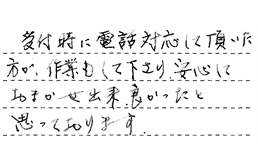 受付時に電話対応して頂いた
方が、作業もして下さり、安心して
おまかせ出来、良かったと
思っております。